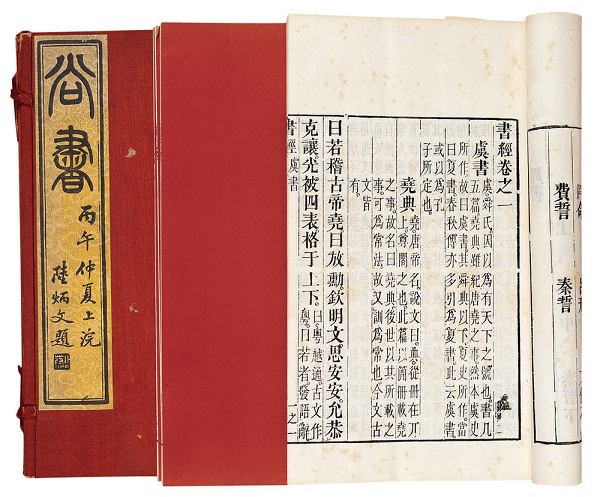 尚書
丙午仲夏上浣
陸炳文題
費誓
秦誓
書經卷之一
虞書
虞舜氏因以爲有天下之號也書凡
五篇堯典雖紀唐堯之事然本虞史
所作故曰虞書其舜典以下夏史所作當
曰夏書春秋傳亦多引爲夏書此云虞書
或以爲孔
子所定也
堯典
堯唐帝名說文曰典從冊在丌
上尊閣之也此篇以簡冊載堯
之事故名曰堯典後世以其所載之
事可爲常法故又訓爲常也今文古
文皆
有
曰若稽古帝堯曰放勳欽明文思安安允恭
克讓光被四表格于上下
曰粵越通古文作
粵曰若者發語辭
書經 虞書 一之一